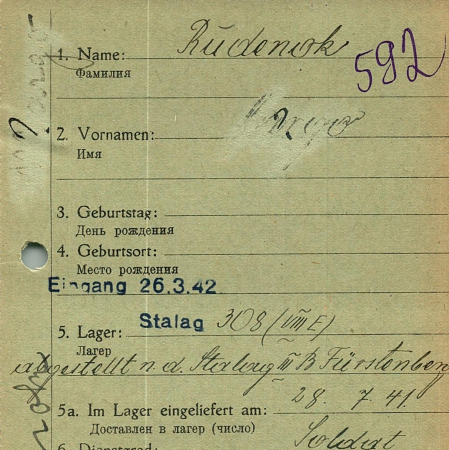 1. Name: Rudenok
592
Фамилия
2. Vornamen:
Имя
3. Geburtstag:
День рождения
4. Geburtsort:
Место рождения
Eingang 26.3.42.
5. Lager: Stalag 308 (VIII E)
Лагер
n. d. Stalag III B Fürstenberg
5a. Im Lager eingeliefert am: 28. 7. 41.
Доставлен в лагер (число)
6. Dienstgrad: Soldat